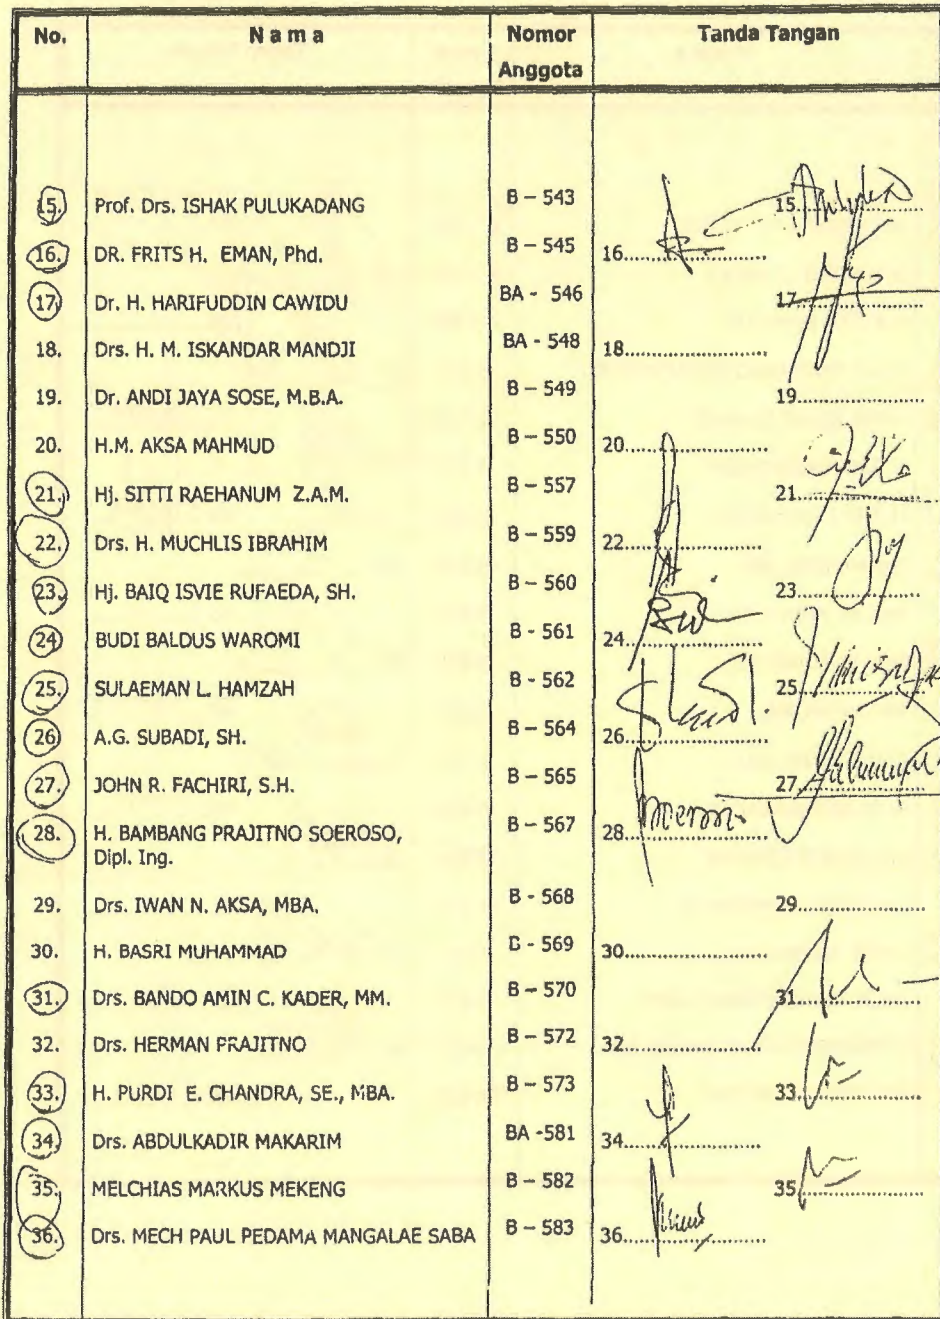 No. N a m a Nomor Anggota Tanda Tangan
15. Prof. Drs. ISHAK PULUKADANG B – 543 15
16. DR. FRITS H. EMAN, Phd. B – 545 16
17 Dr. H. HARIFUDDIN CAWIDU BA - 546 17
18. Drs. H. M. ISKANDAR MANDJI BA - 548 18
19. Dr. ANDI JAYA SOSE, M.B.A. B – 549 19
20. H.M. AKSA MAHMUD B – 550 20
21. Hj. SITTI RAEHANUM Z.A.M. B – 557 21
22. Drs. H. MUCHLIS IBRAHIM B – 559 22
23. Hj. BAIQ ISVIE RUFAEDA, SH. B – 560 23
24 BUDI BALDUS WAROMI B - 561 24
25. SULAEMAN L. HAMZAH B - 562 25
26 A.G. SUBADI, SH. B – 564 26
27. JOHN R. FACHIRI, S.H. B – 565 27
28. H. BAMBANG PRAJITNO SOEROSO, B – 567 28
Dipl. Ing.
29. Drs. IWAN N. AKSA, MBA. B - 568 29
30. H. BASRI MUHAMMAD B - 569 30
31. Drs. BANDO AMIN C. KADER, MM. B – 570 31
32. Drs. HERMAN PRAJITNO B – 572 32
33. H. PURDI E. CHANDRA, SE., MBA. B – 573 33
34. Drs. ABDULKADIR MAKARIM BA -581 34
35. MELCHIAS MARKUS MEKENG B – 582 35
36. Drs. MECH PAUL PEDAMA MANGALAE SABA B – 583 36